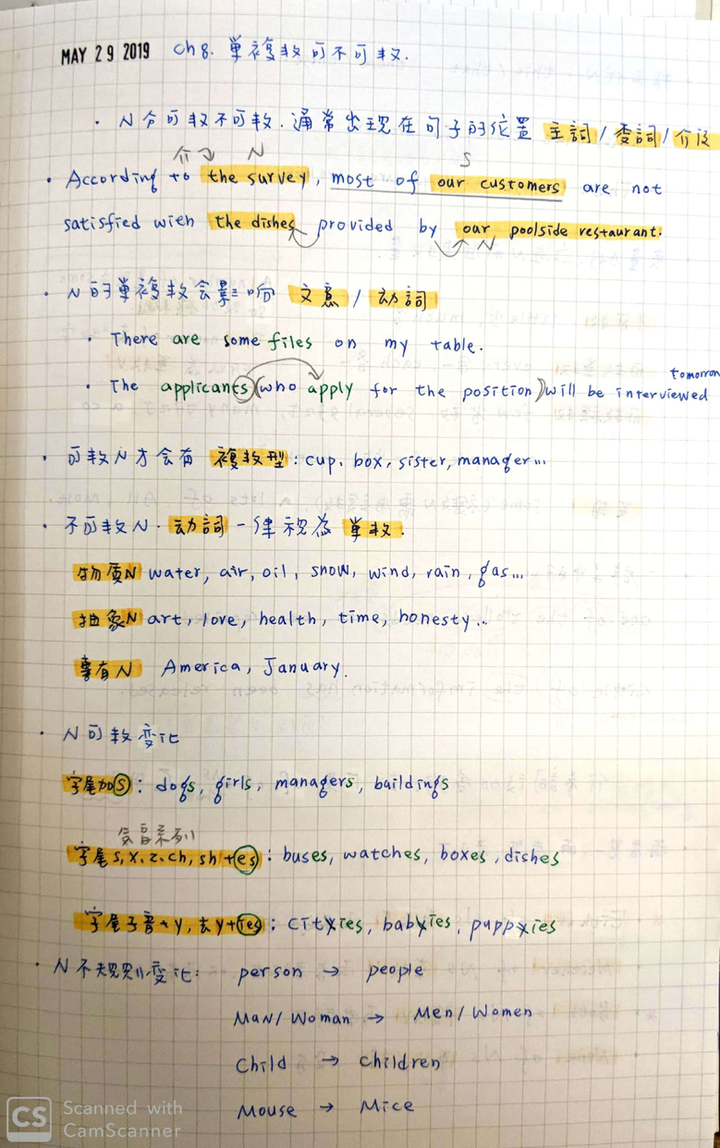 MAY 29 2019 ch 8. 單複数可不可数.
• N分可数不可数. 通常出現在句子的位置 主詞/受詞/介
介 N S
• According to the survey, most of our customers are not
satisfied with the dishes provided by our poolside restaurant.
N
• N的單複数会影响 文意/动詞
• There are some files on my table.
tomorrow
• The applicants (who apply for the position) will be interviewed
• 可数N才会有 複数型: cup, box, sister, manager...
• 不可数N. 动詞一律視為單数.
物质N water, air, oil, snow, wind, rain, gas...
抽象N art, love, health, time, honesty..
專有N America, January.
• N可数变化
字尾加s: dogs, girls, managers, buildings
系列
字尾s, x, z, ch, sh +es: buses, watches, boxes, dishes
字尾子音+y, 去y+ies: cityies, babyies, puppyies
• N不規則变化: person → people
Man/Woman → Men/Women
Child → Children
Mouse → Mice
CS Scanned with
CamScanner